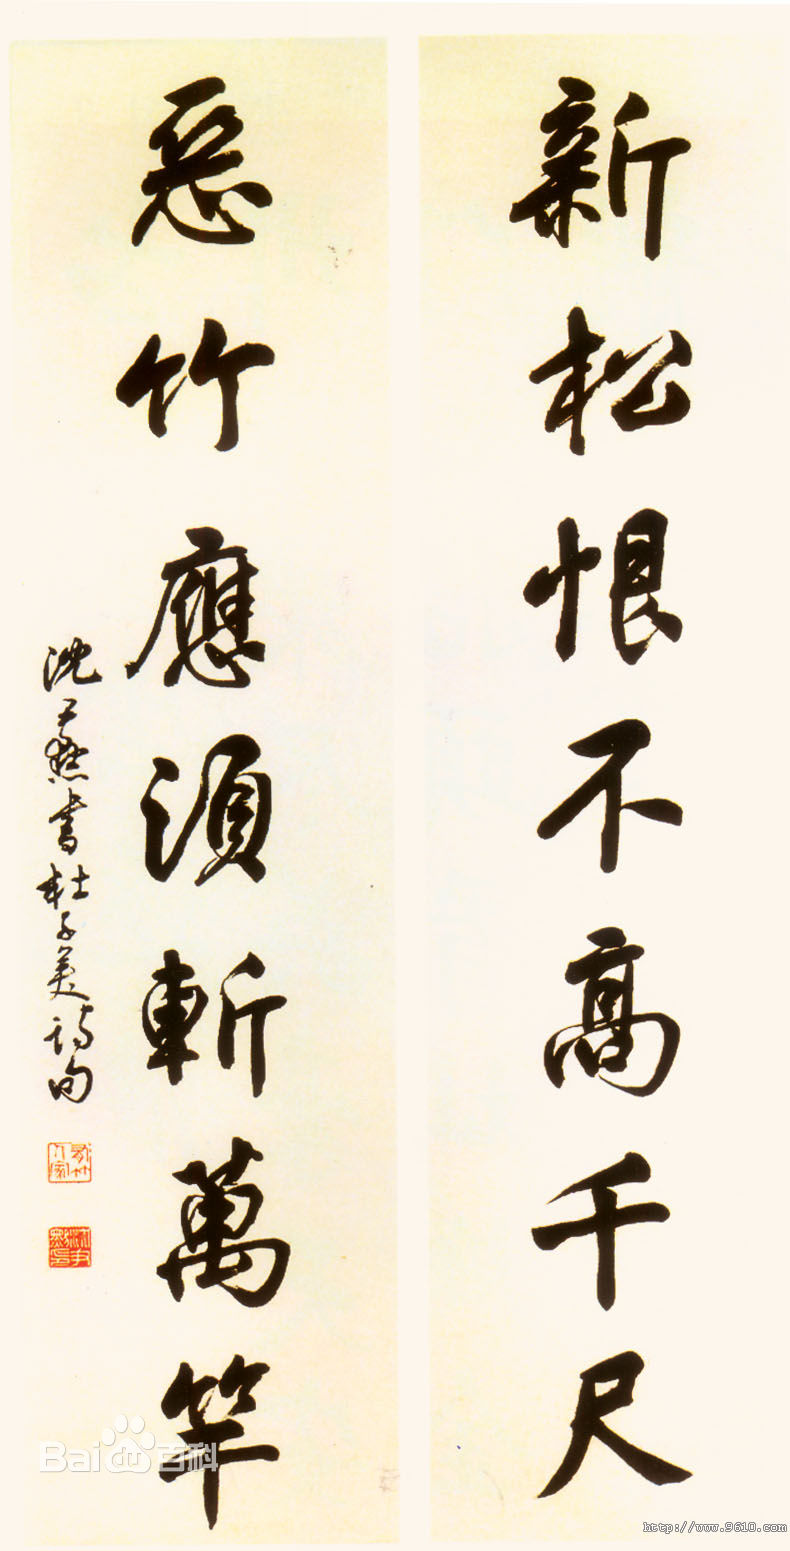 新松恨不高千尺
惡竹應須斬萬竿
沈尹默書杜子美詩句
Baidu百科
http://www.9610.com